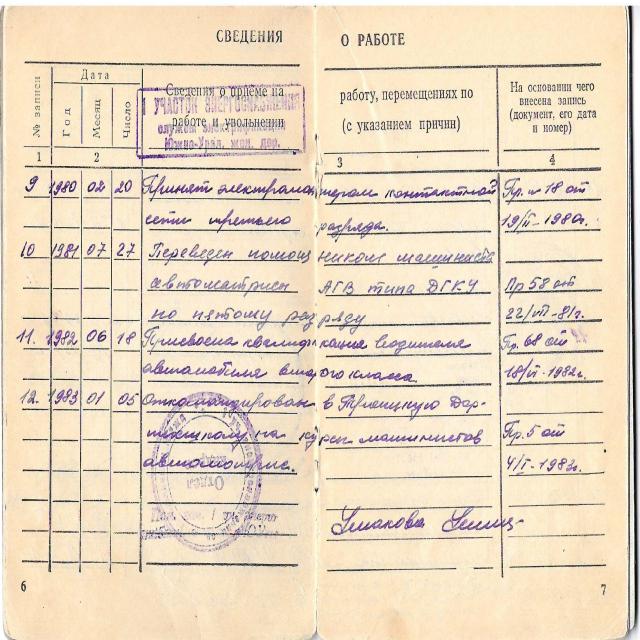 СВЕДЕНИЯ О РАБОТЕ
№ записи
Дата
Год
Месяц
Число
Сведения о приеме на
работе и увольнении
I УЧАСТОК ЭНЕРГОСНАБЖЕНИЯ
службы электрификации
Южно-Урал. жел. дор.
работу, перемещениях по
(с указанием причин)
На основании чего
внесена запись
(документ, его дата
и номер)
1 2 3 4
9 1980 02 20 Принят электромонтером контактной Пр. № 18 от
сети третьего разряда. 19/II-1980г.
10 1981 07 27 Переведен помощником машиниста
автомотрисы АГВ типа ДГКУ Пр 58 от
по пятому разряду 22/VII-81г.
11. 1982 06 18 Присвоена квалификация водителя Пр. 68 от
автомобиля второго класса 18/VI-1982г.
12. 1983 01 05 Откомандирован в Троицкую Дор-
техшколу на курсы машинистов Пр. 5 от
автомотрис. 4/I-1983г.
6 7